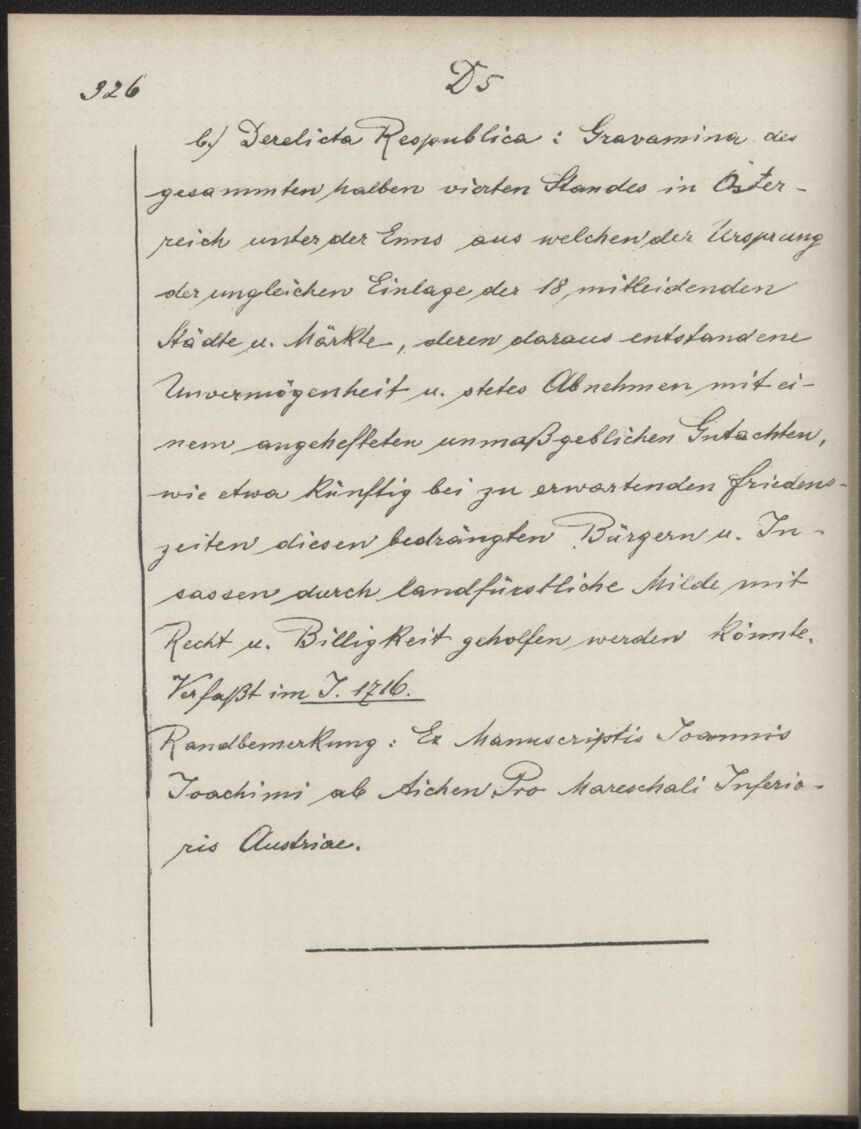 326
D5
b.) Derelicta Respublica: Gravamina des
gesammten halben vierten Standes in Öster-
reich unter der Enns aus welchen der Ursprung
der ungleichen Einlage der 18 mitleidenden
Städte u. Märkte, deren daraus entstandene
Unvermögenheit u. stetes Abnehmen mit ei-
nem angehefteten unmaßgeblichen Gutachten,
wie etwa künftig bei zu erwartenden Friedens-
zeiten diesen bedrängten Bürgern u. In-
sassen durch landfürstliche Milde mit
Recht u. Billigkeit geholfen werden könnte.
Verfaßt im J. 1716.
Randbemerkung: Ex Manuscriptis Joannis
Joachimi ab Aichen Pro Mareschali Inferio-
ris Austriae.